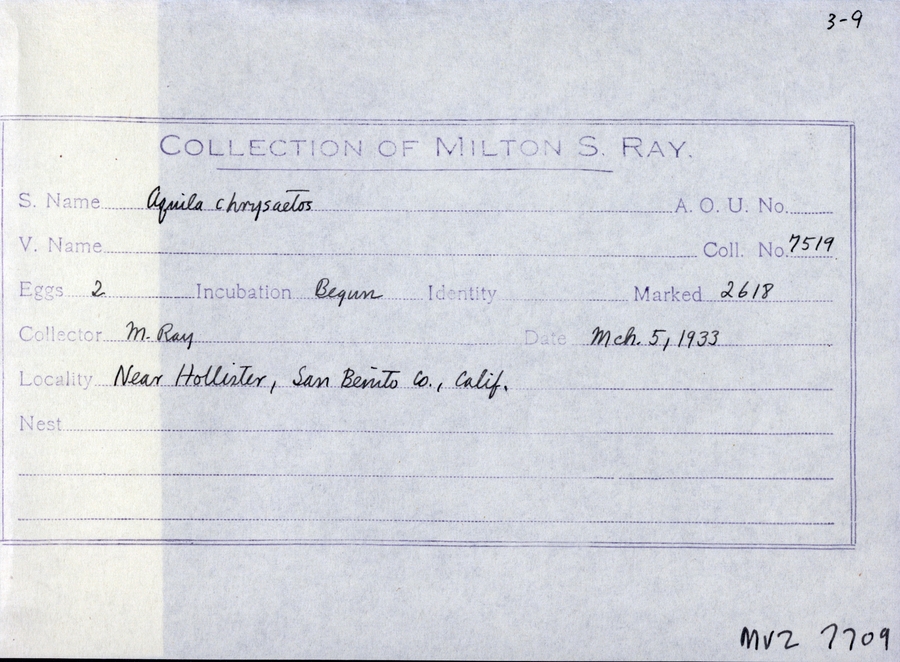 3-9
COLLECTION OF MILTON S. RAY.
S. Name Aquila chrysaetos A. O. U. No.
V. Name Coll. No. 7519
Eggs 2 Incubation Begun Identity Marked 2618
Collector M. Ray Date Mch. 5, 1933
Locality Near Hollister, San Benito Co., Calif.
Nest
MVZ 7709